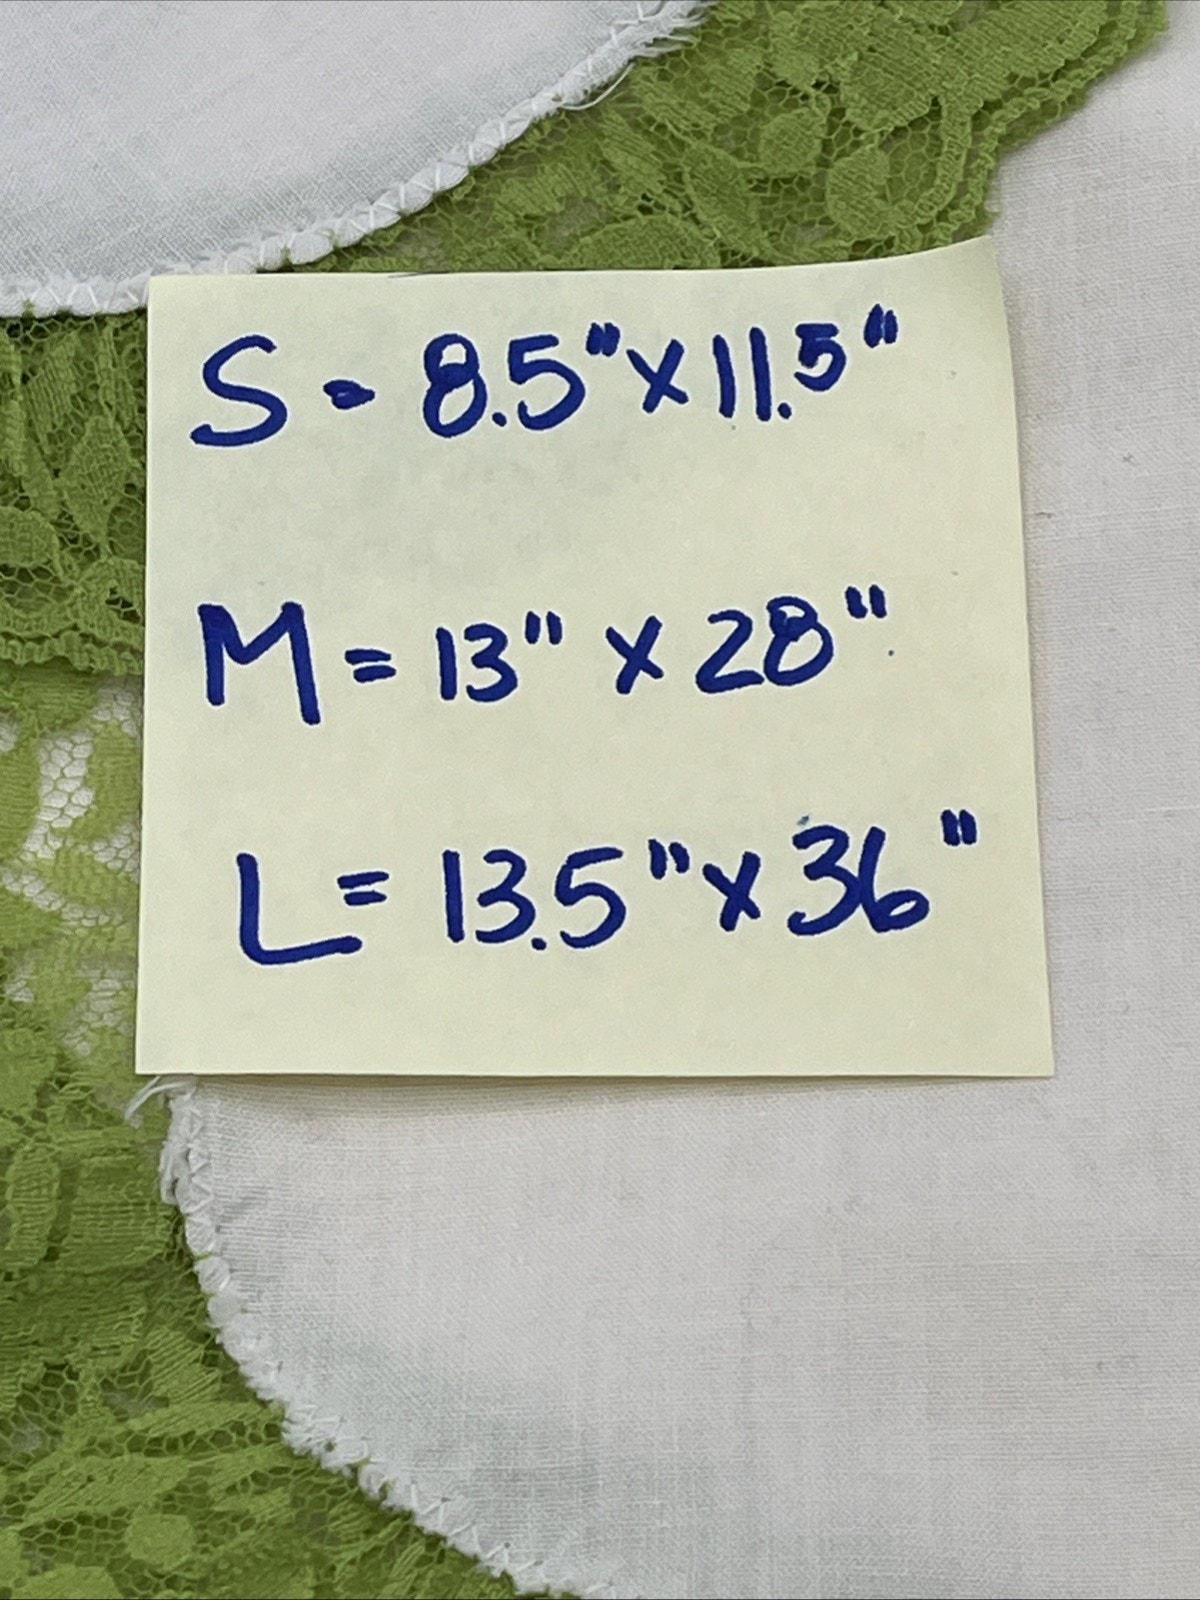 S - 8.5" x 11.5"
M = 13" x 28"
L = 13.5" x 36"